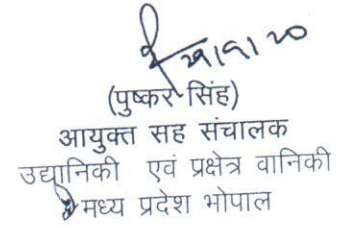 (पुष्कर सिंह)
आयुक्त सह संचालक
उद्यानिकी एवं प्रक्षेत्र वानिकी
मध्य प्रदेश भोपाल